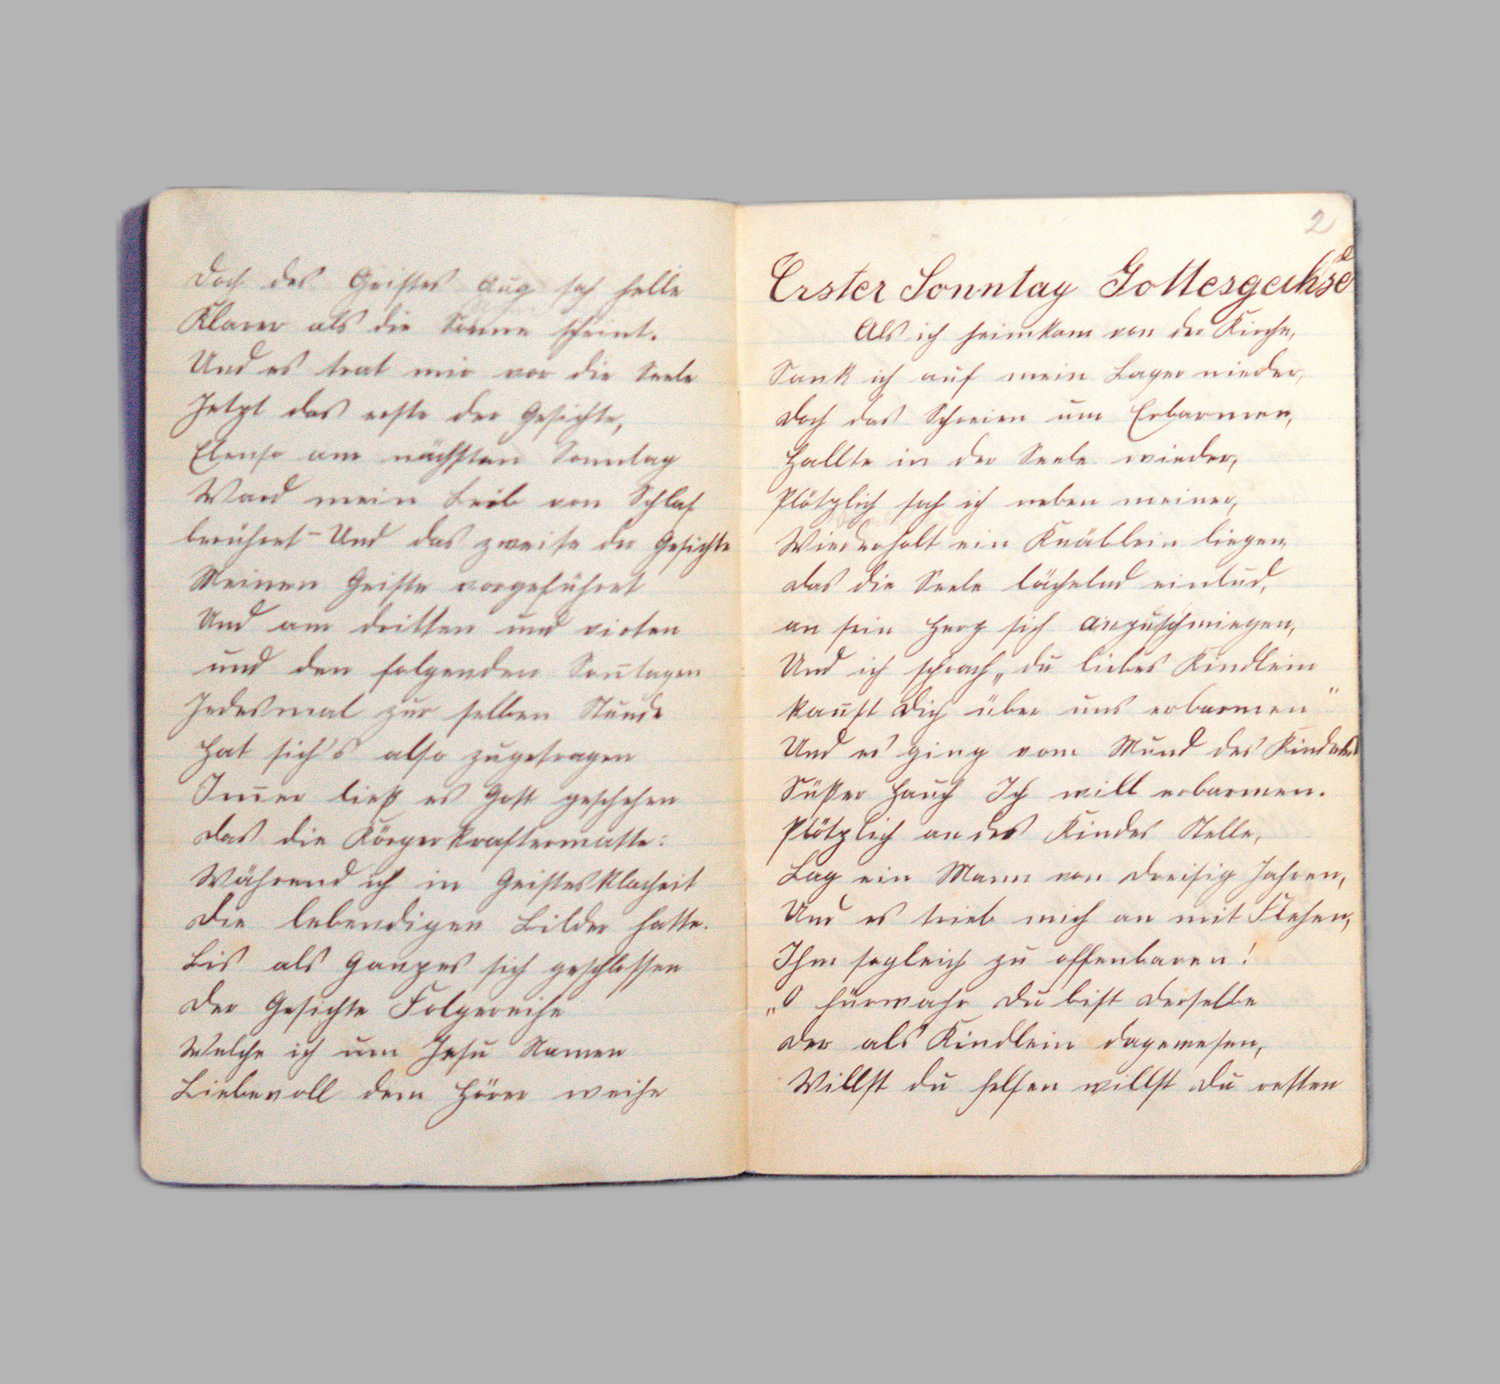 Doch des Geistes Aug sah helle
Klarer als die Sonne scheint.
Und es trat mir vor die Seele
Jetzt das erste der Gesichte,
Ebenso am nächsten Sonntag
Ward mein Leib von Schlaf
berühret - Und das zweite der Gesichte
Meinen Geiste vorgeführet
Und am dritten und vierten
und den folgenden Sonntagen
Jedesmal zur selben Stunde
Hat sich's also zugetragen
Immer ließ es Gott geschehen
Das die Körperkraftermatte:
Während ich in Geistesklarheit
Die lebendigen Bilder hatte.
Bis als Ganzes sich geschlossen
Der Gesichte Folgereihe
Welche ich um Jesu Namen
Liebevoll dem Hörer weihe
2
Erster Sonntag
Als ich heimkam von der Kirche,
Sank ich auf mein Lager nieder,
Doch das Schreien um Erbarmen,
Hallte in der Seele wieder,
Plötzlich sah ich neben meiner,
Wiederholt ein Knäblein liegen
Das die Seele lächelnd einlud,
an sein Herz sich anzuschmiegen,
Und ich sprach „du liebes Kindlein
kannst Dich über uns erbarmen"
Und es ging vom Mund des Kindes
Süßer Hauch Ich will erbarmen.
Plötzlich an des Kindes Stelle,
Lag ein Mann von dreisig Jahren,
Und es trieb mich an mit Flehen,
Ihm sogleich zu offenbaren!
„O fürwahr du bist derselbe
Der als Kindlein dagewesen,
Willst du helfen willst du retten